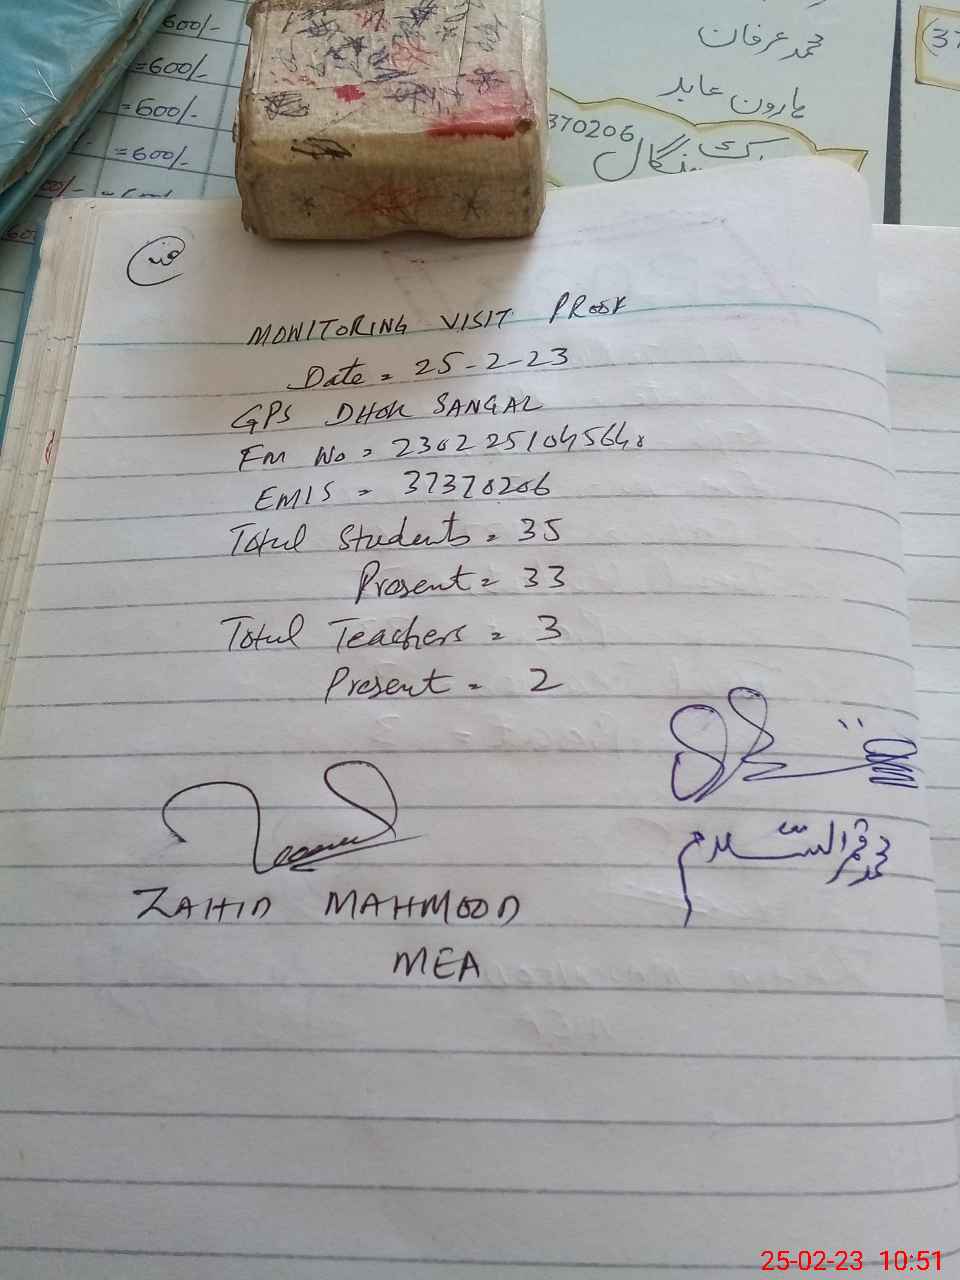 =600/-
=600/-
=600/-
=600/-
محمد عرفان
ہارون عابد
370206
(37
MONITORING VISIT PROOF
Date = 25-2-23
GPS DHOK SANGAL
EMIS = 37370206
Total Students = 35
Present = 33
Total Teachers = 3
Present = 2
محمد قمر السلام
ZAHID MAHMOOD
MEA
25-02-23 10:51